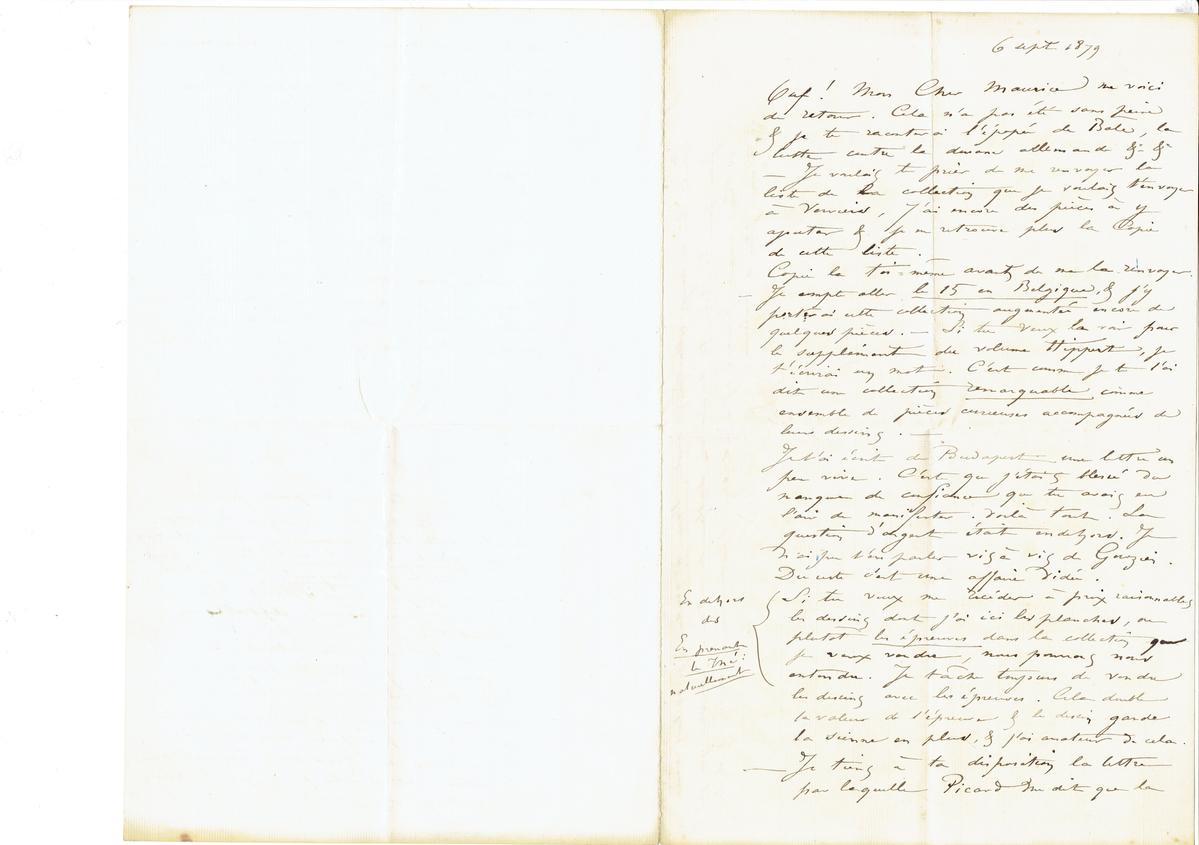 6 sept 1879
Ouf ! Mon Cher Maurice me voici
de retour. Cela n'a pas été sans peine
& je te raconterai l'épopée de Bâle, la
lutte contre la douane allemande &- &-
— Je voulais te prier de me renvoyer la
liste de la collection que je voulais t'envoyer
à Verviers, j'ai encore des pièces à y
ajouter & je ne retrouve plus la Copie
de cette liste.
Copie la toi-même avant de me la renvoyer.
— Je compte aller le 15 en Belgique, & j'y
porterai cette collection augmentée encore de
quelques pièces. — Si tu veux la voir pour
le supplément du volume Hippert, je
t'écrirai un mot. C'est comme je te l'ai
dit une collection remarquable comme
ensemble de pièces curieuses accompagnées de
leurs dessins. —
Je t'ai écrit de Budapest une lettre un
peu vive. C'est que j'étais blessé du
manque de confiance que tu avais eu
l'air de manifester. Voilà tout. La
question d'argent était en dehors. Je
n'ai pu t'en parler vis à vis de Gouzien.
Du reste c'est une affaire vidée.
Si tu veux me céder à prix raisonnables
les dessins dont j'ai ici les planches, ou
plutôt les épreuves dans la collection que
je veux vendre, nous pourrons nous
entendre. Je tâche toujours de vendre
les dessins avec les épreuves. Cela double
la valeur de l'épreuve & le dessin garde
la sienne en plus, & j'ai amateur de cela.
— Je tiens à ta disposition la lettre
par laquelle Picard me dit que la
En dehors
des
En prenant
le Thé :
naturellement